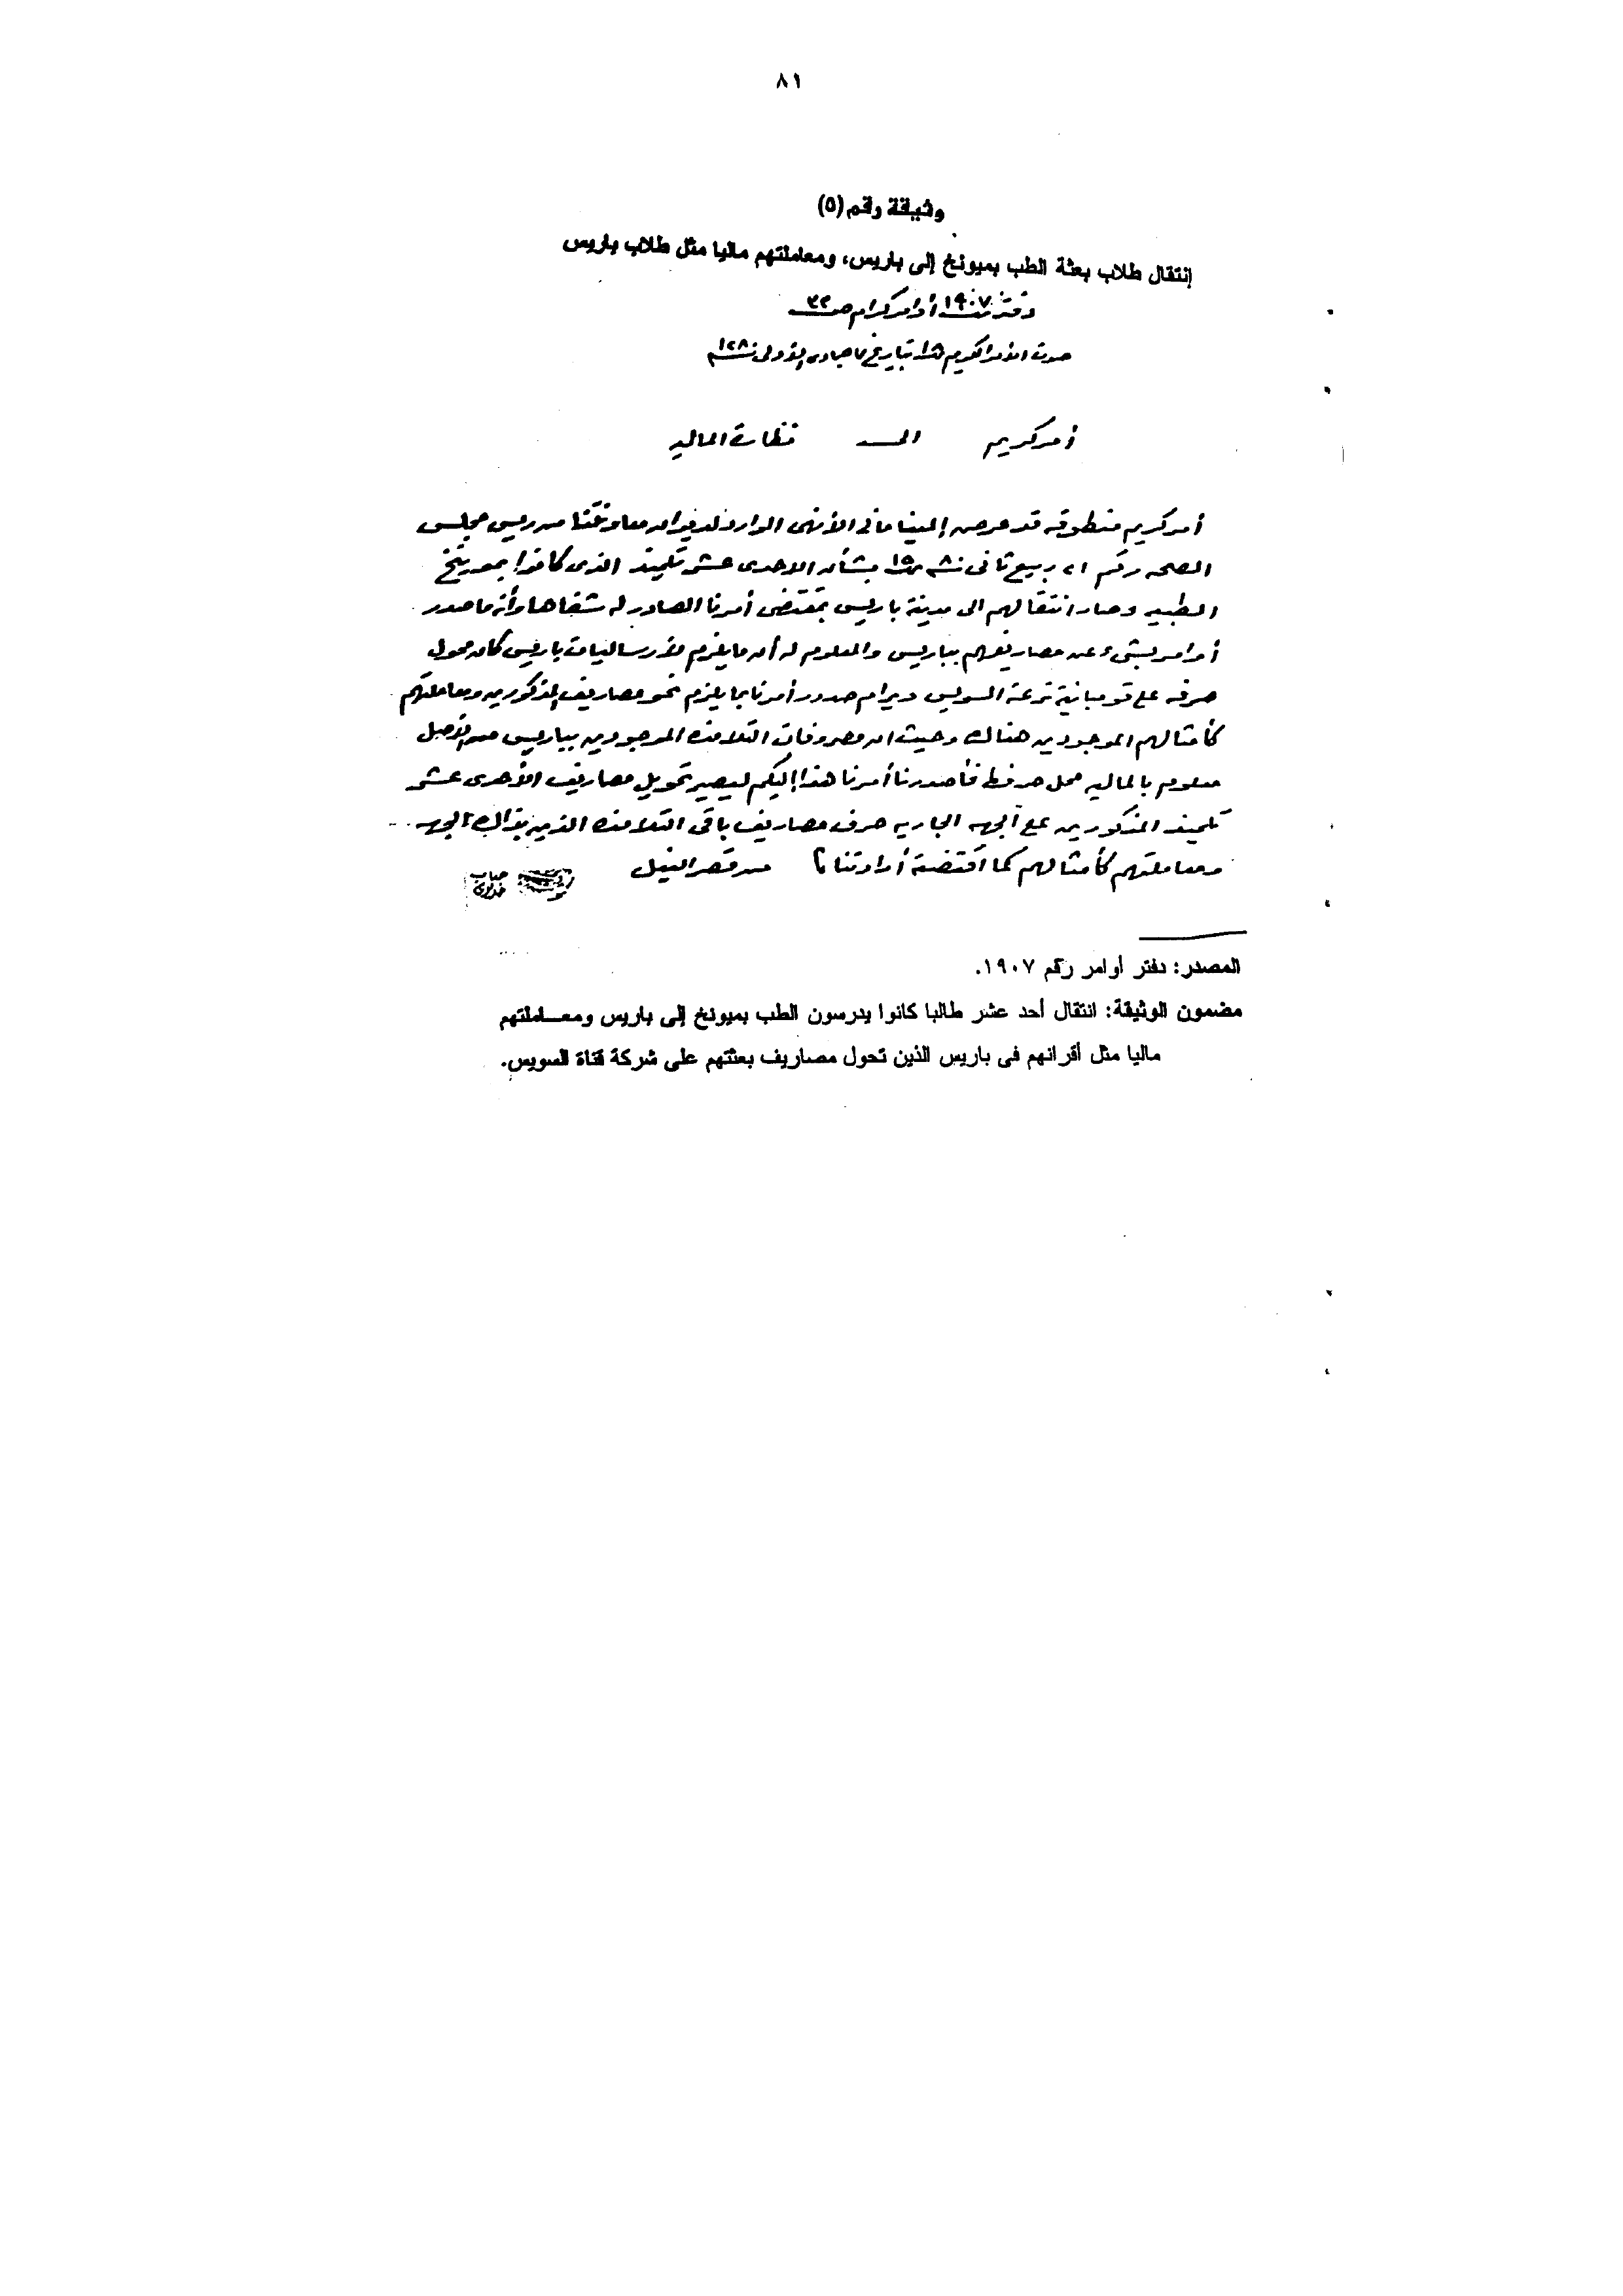 ٨١
وثيقة رقم (٥)
إنتقال طلاب بعثة الطب بميونخ إلى باريس، ومعاملتهم ماليا مثل طلاب باريس
دفتر ١٩٠٧ أوامر كرام ص ٣٢
صورة الأمر الكريم بتاريخ جمادى الأولى
أمر كريم الى نظارة المالية
أمر كريم منطوقه قد عرض إلينا مافى الأنهى الوارد لديوان معاونتنا من رئيس مجلس
الصحه رقم ٢١ ربيع ثانى بشأن الاحدى عشر تلميذ الذى كانوا بمورينخ
الطبيه وصار انتقالهم الى مدينة باريس بمقتضى أمرنا الصادر له شفاها وأنه ماصدر
أوامر بشىء عن مصاريفهم بباريس والمعلوم له أن مايلزم لأرساليات باريس كان محول
صرفه على قومبانية ترعة السويس ويرام صدور أمرنا بما يلزم نحو مصاريف المذكورين ومعاملتهم
كأمثالهم الموجودين هناك وحيث ان مصروفات التلامذه الموجودين بباريس من الأصل
معلوم بالماليه محل صرفها فأصدرنا أمرنا هذا إليكم ليصير تحويل مصاريف الأحدى عشر
تلميذ المذكورين على الجهه الجاريه صرف مصاريف باقى التلامذه الذين بذاك الجهه
ومعاملتهم كأمثالهم كما اقتضته أرادتنا من قصر النيل
المصدر: دفتر أوامر رقم ١٩٠٧.
مضمون الوثيقة: انتقال أحد عشر طالبا كانوا يدرسون الطب بميونخ إلى باريس ومعـــاملتهم
ماليا مثل أقرانهم فى باريس الذين تحول مصاريف بعثتهم على شركة قناة السويس.